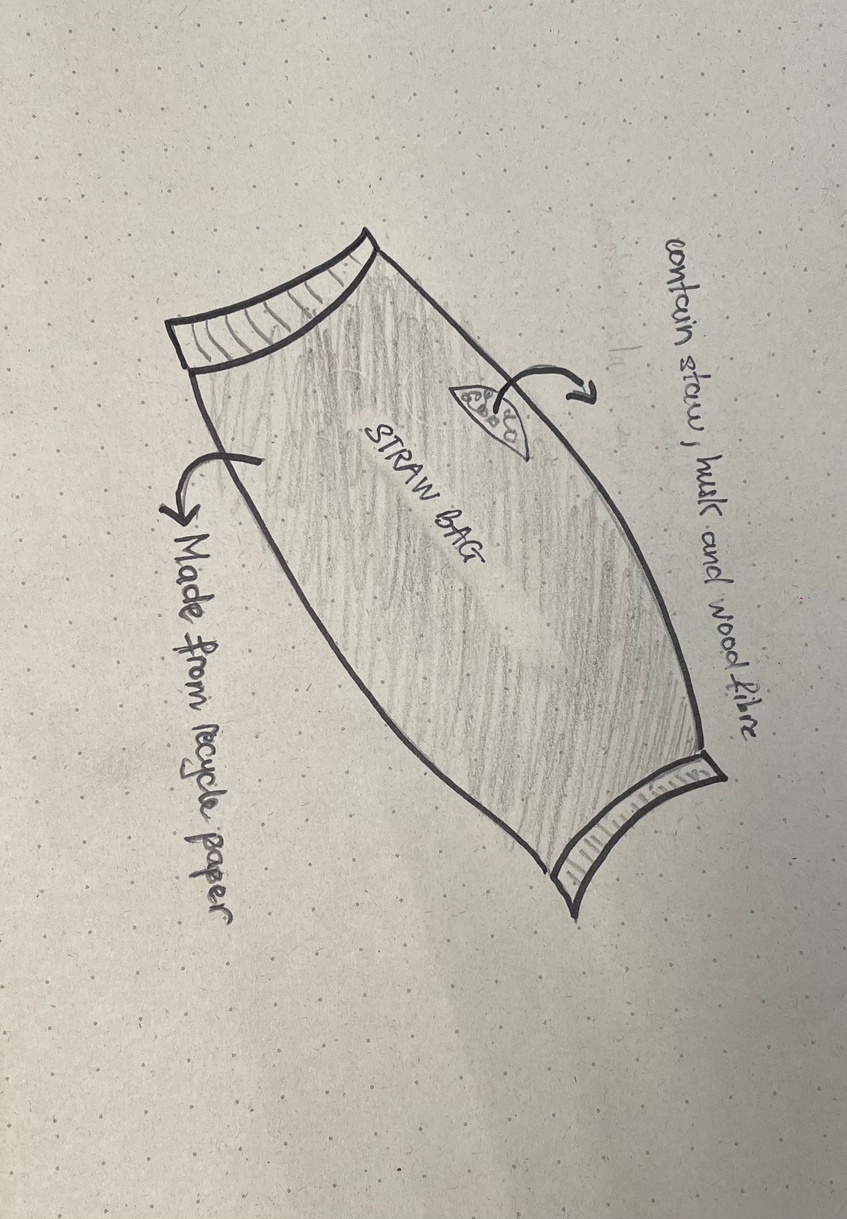 contain staw, husk and wood fibre
STRAW BAG
Made from recycle paper